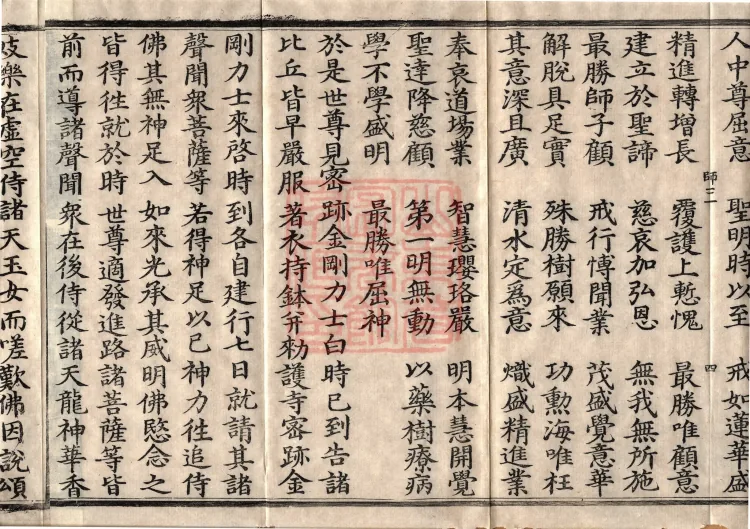 人中尊屈意 聖明時以至 戒如蓮華盛
精進轉增長 覆護上慙愧 最勝唯顧意
師二 四
建立於聖諦 慈哀加弘恩 無我無所施
最勝師子顧 戒行愽聞業 茂盛覺意華
解脫具足實 殊勝樹願來 功勲海唯枉
其意深且廣 清水定爲意 熾盛精進業
奉哀道場業 智慧瓔珞嚴 明本慧開覺
聖達降慈顧 第一明無動 以藥樹療病
學不學盛明 最勝唯屈神
於是世尊見密跡金剛力士白時已到告諸
比丘皆早嚴服著衣持鉢并勑護寺密跡金
剛力士來啓時到各自建行七日就請其諸
聲聞衆菩薩等若得神足以已神力徃追侍
佛其無神足入如來光承其威明佛愍念之
皆得徃就於時世尊適發進路諸菩薩等皆
前而導諸聲聞衆在後侍從諸天龍神華香
妓樂在虚空侍諸天玉女而嗟歎佛因說頌